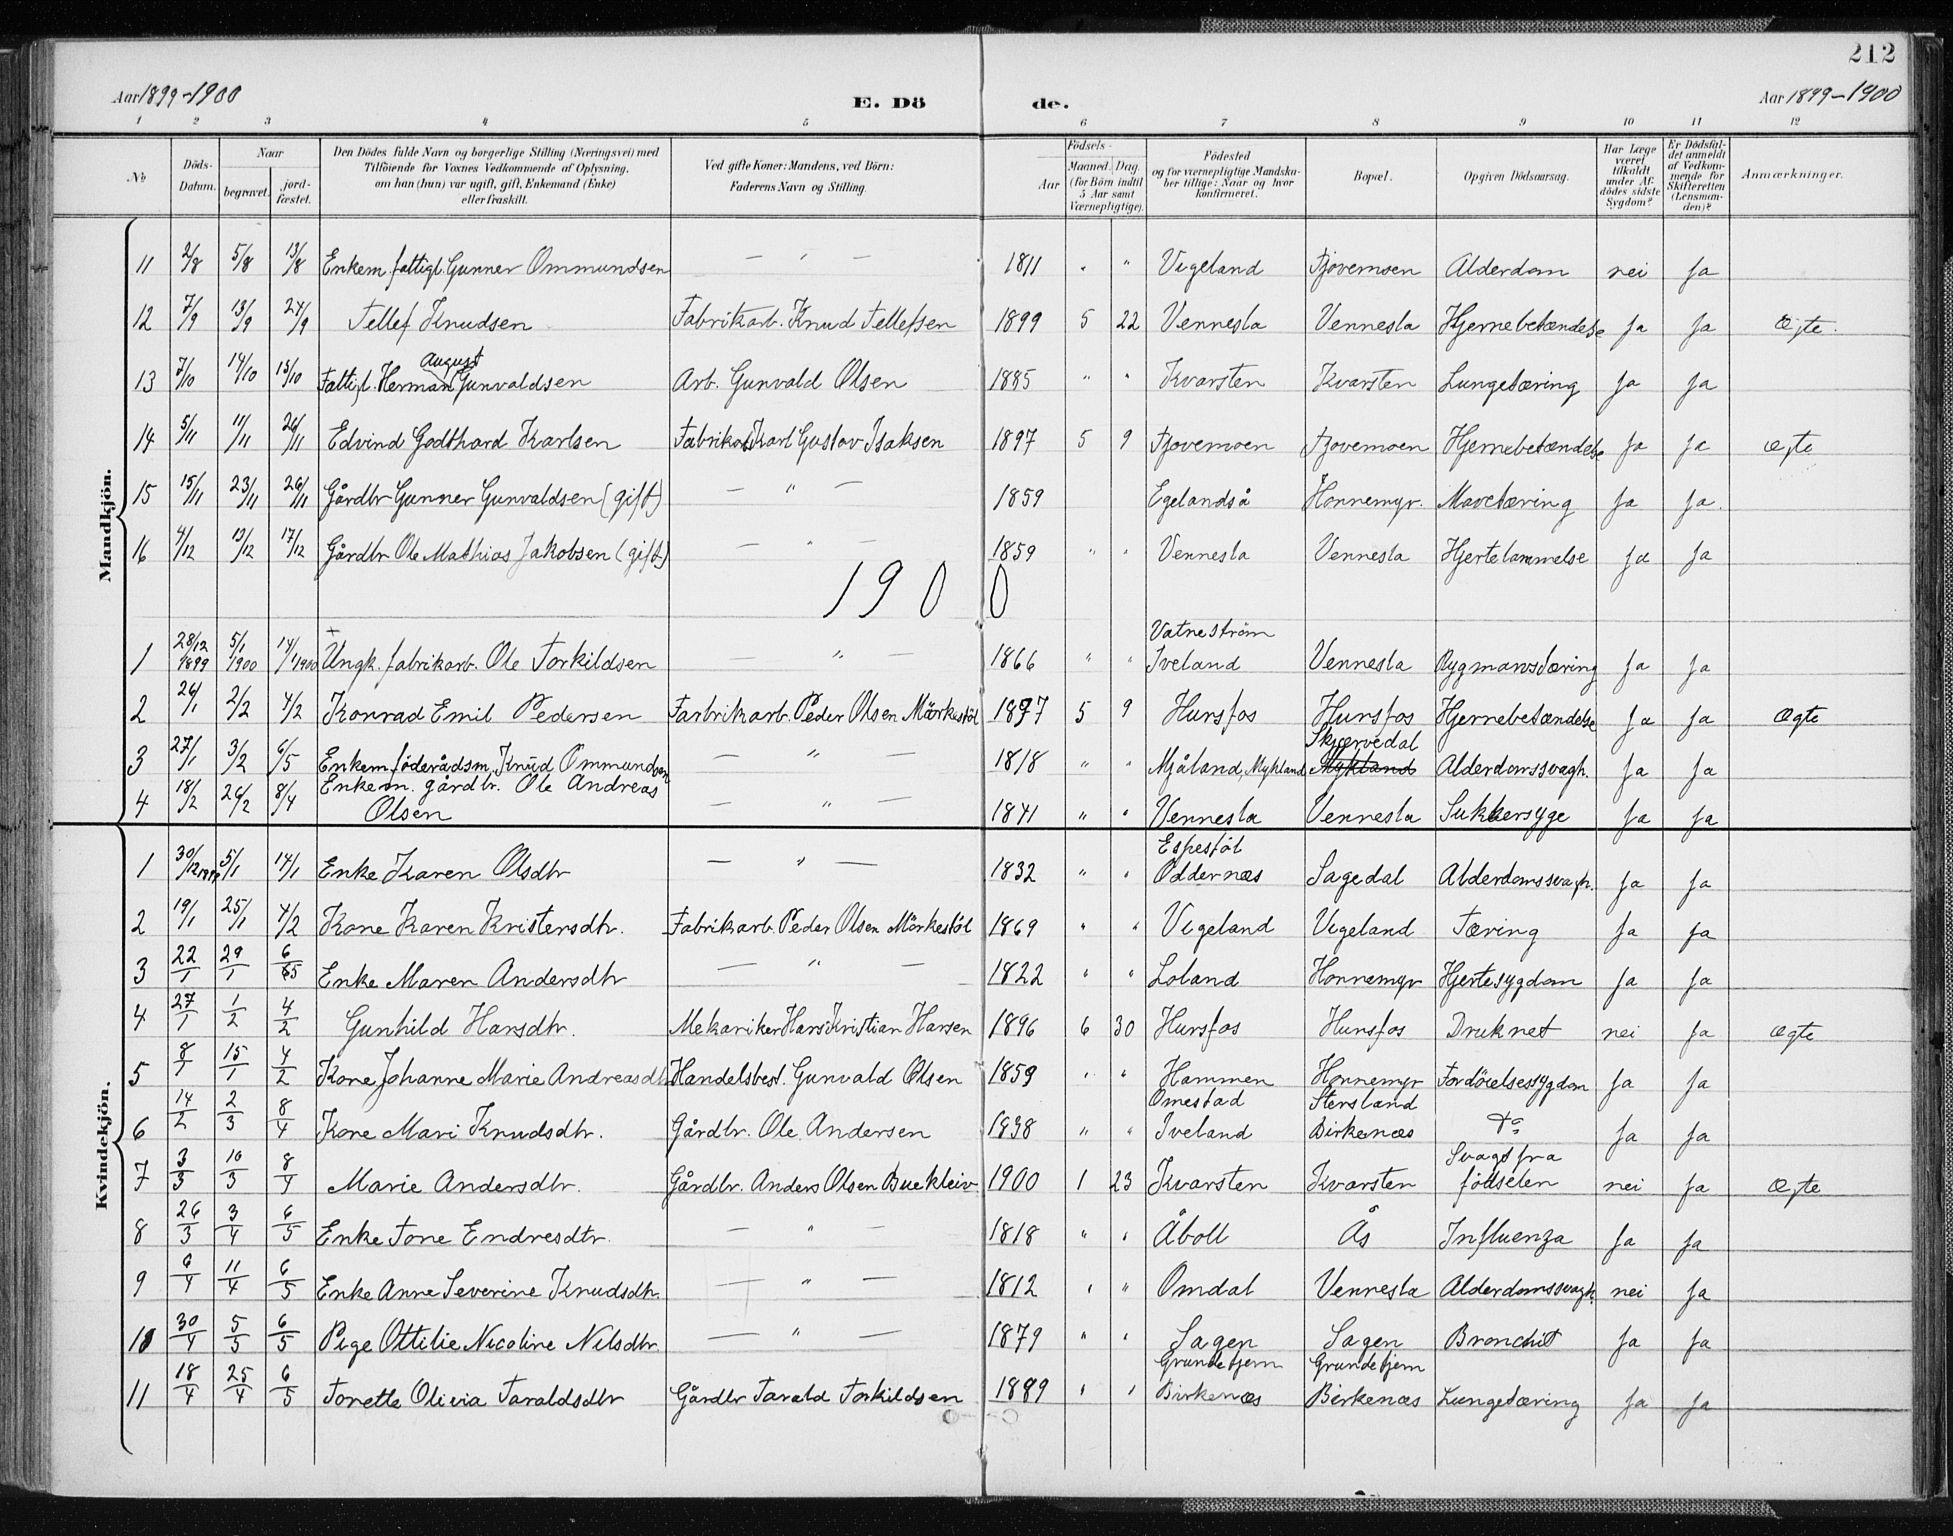 212
Aar 1899-1900 E. Dö de. Aar 1899-1900
1 2 3 4 5 6 7 8 9 10 11 12
№ Döds-Datum. Naar begravet. jord-fæstet. Den Dödes fulde Navn og borgerlige Stilling (Næringsvei) med Tilföiende for Voxnes Vedkommende af Oplysning, om han (hun) var ugift, gift, Enkemand (Enke) eller fraskilt. Ved gifte Koner: Mandens, ved Börn: Faderens Navn og Stilling. Födsels- Aar Maaned. Dag. (for Börn indtil 5 Aar samt Værnepligtige). Födested og for værnepligtige Mandskaber tillige: Naar og hvor konfirmeret. Bopæl. Opgiven Dödsaarsag. Har Læge været tilkaldt under Afdödes sidste Sygdom? Er Dödsfaldet anmeldt af Vedkommende for Skifteretten (Lensmanden)? Anmærkninger.
Mandkjön.
11 2/8 5/8 13/8 Enkem. fattigl. Gunner Ommundsen — " — 1811 " " Vigeland Fjovemoen Alderdom nei Ja
12 7/9 13/9 24/9 Tellef Knudsen Fabrikarb. Knud Tellefsen 1899 5 22 Vennesla Vennesla Hjernebetændelse Ja Ja Ægte.
13 7/10 14/10 15/10 Fattigl. Herman August Gunvaldsen Arb. Gunvald Olsen 1885 " " Kvarsten Kvarsten Lungetæring Ja Ja
14 5/11 11/11 26/11 Edvind Godthard Karlsen Fabrikarb Karl Gustav Isaksen 1897 5 9 Fjovemoen Fjovemoen Hjernebetændelse Ja Ja Ægte
15 15/11 23/11 26/11 Gårdbr Gunner Gunvaldsen (gift) — " — 1859 Egelandså Honnemyr. Mavetæring Ja Ja.
16 4/12 13/12 17/12 Gårdbr Ole Mathias Jakobsen (gift) — " — 1859 " " Vennesla Vennesla Hjertelammelse Ja Ja
1900
1 28/12 1899 5/1 1900 14/1 1900 Ungk. fabrikarb. Ole Torkildsen — " — 1866 " " Vatneström Iveland Vennesla Rygmarvstæring Ja Ja
2 26/1 2/2 4/2 Konrad Emil Pedersen Farbrikarb. Peder Olsen Mörkestöl 1897 5 9 Hunsfos Hunsfos Hjernebetændelse Ja Ja Ægte
3 27/1 3/2 6/5 Enkem föderådsm. Knud Ommundsen — " — 1818 " " Mjåland, Mykland Skjærvedal Mykland Alderdomssvagh. Ja Ja
4 18/2 26/2 8/4 Enkem. gårdbr. Ole Andreas Olsen — " — 1841 " " Vennesla Vennesla Sukkersyge Ja Ja
Kvindekjön.
1 30/12 1899 5/1 14/1 Enke Karen Olsdtr — " — 1832 " " Espestöl Oddernæs Sagedal Alderdomssvagh. Ja Ja
2 19/1 25/1 4/2 Kone Karen Kristensdtr. Fabrikarb. Peder Olsen Mörkestöl 1869 " " Vigeland Vigeland Tæring Ja Ja
3 22/1 29/1 6/5 Enke Maren Andersdtr — " — 1822 " " Loland Honnemyr Hjertesygdom Ja Ja
4 27/1 1/2 4/2 Gunhild Hansdtr. Mekaniker Hans Kristian Hansen 1896 6 30 Hunsfos Hunsfos Druknet nei Ja Ægte
5 8/1 15/1 4/2 Kone Johanne Marie Andreasdtr Handelsbest. Gunvald Olsen 1859 " " Hammen Honnemyr Fordöielsessygdom Ja Ja
6 14/2 2/3 8/4 Kone Mari Knudsdtr. Gårdbr. Ole Andersen 1838 " " Omestad Iveland Stersland Birkenæs Do Ja Ja
7 3/3 10/3 8/4 Marie Andersdtr. Gårdbr. Anders Olsen Buekleiv 1900 1 23 Kvarsten Kvarsten Svagt fra födselen nei Ja Ægte
8 26/3 3/4 6/5 Enke Tone Endresdtr. — " — 1818 " " Åboll Ås Influenza Ja Ja
9 6/4 11/4 6/5 Enke Anne Severine Knudsdtr. — " — 1812 " " Omdal Vennesla Alderdomssvagh. nei Ja
10 30/4 5/5 6/5 Pige Ottilie Nicoline Nilsdtr. — " — 1879 " " Sagen Sagen Bronchit Ja Ja
11 18/4 25/4 6/5 Tonette Olivia Taraldsdtr Gårdbr Tarald Torkildsen 1889 " " Grundetjern Birkenæs Grundetjern Birkenæs Lungetæring Ja Ja